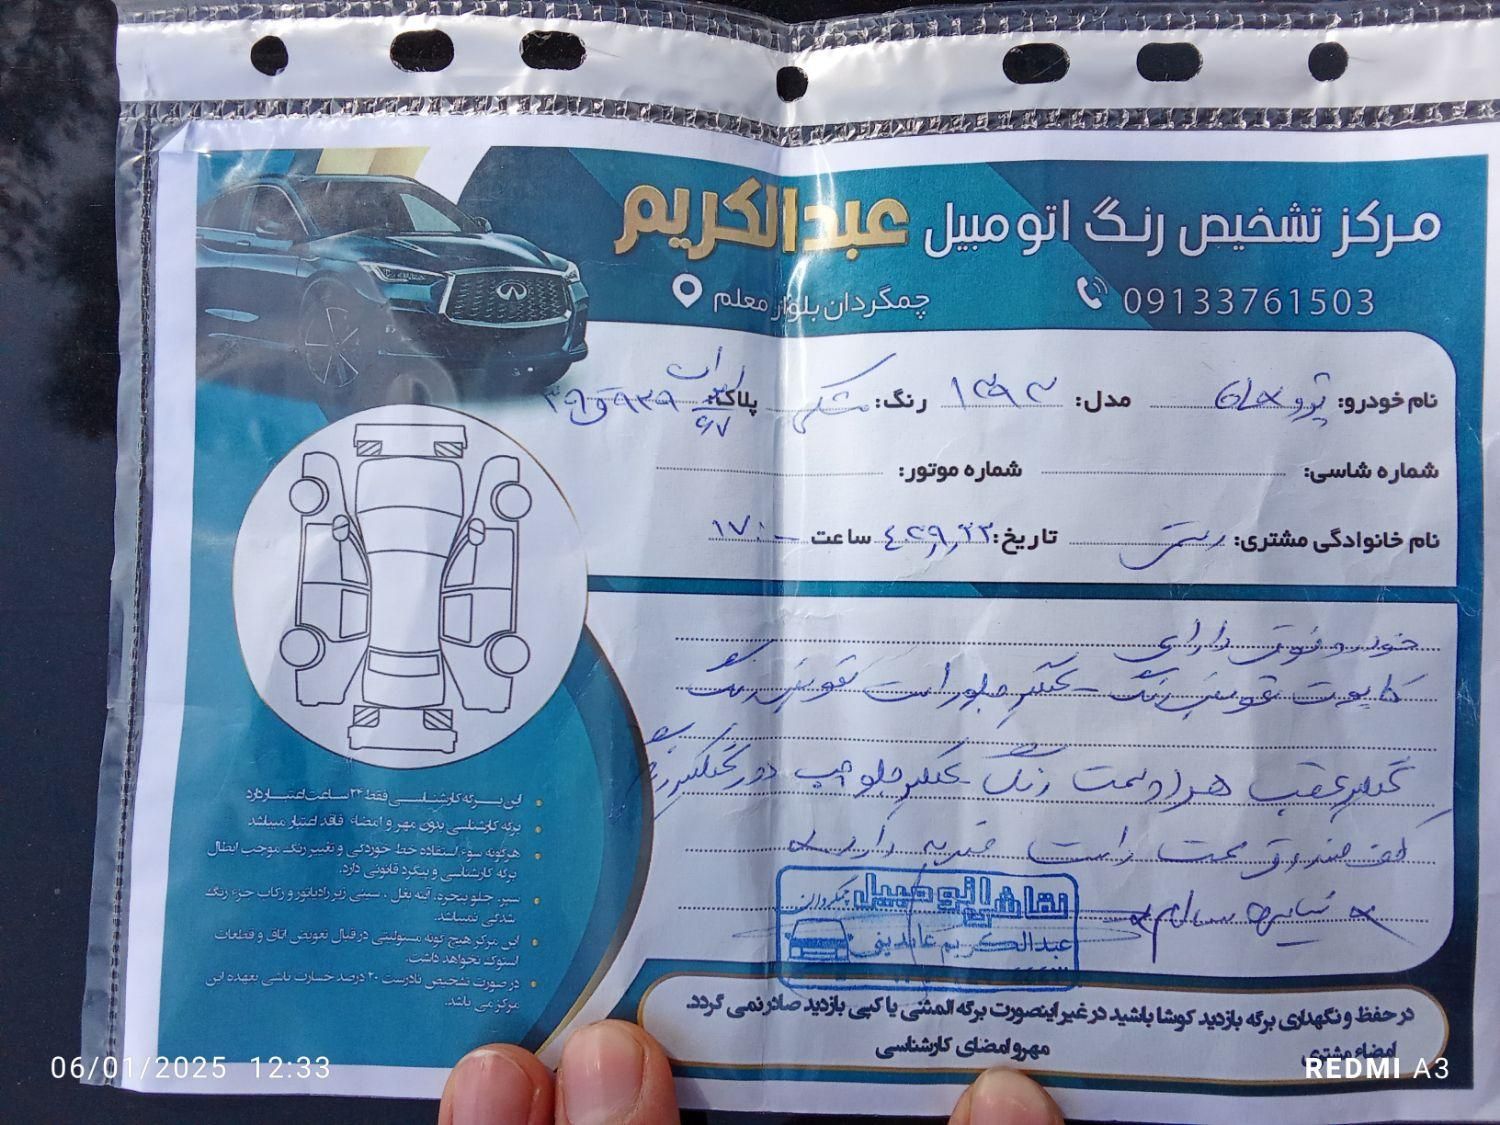 مرکز تشخیص رنگ اتومبیل عبدالکریم
09133761503
چمگردان بلوار معلم
نام خودرو: پژو مدل: ۱۳۹۳ رنگ: مشکی پلاک: ایران
شماره شاسی: شماره موتور:
نام خانوادگی مشتری: تاریخ: ساعت ۱۷:۰۰
خودرو فوق دارای
کاپوت تعویض رنگ - گلگیر جلو راست تعویض رنگ
گلگیر عقب هر دو سمت رنگ گلگیر جلو چپ دور گلگیر رنگ
کف صندوق سمت راست ضربه دارد
بقیه سالم
نقاشی اتومبیل چمگردان
عبدالکریم عابدینی
این برگه کارشناسی فقط ۲۴ ساعت اعتبار دارد
برگه کارشناسی بدون مهر و امضاء فاقد اعتبار میباشد
هرگونه سوء استفاده خط خوردگی و تغییر رنگ موجب ابطال
برگه کارشناسی و پیگرد قانونی دارد.
سپر، جلو پنجره، آینه بغل، سینی زیر رادیاتور و رکاب جزء رنگ
شدگی نمیباشد.
این مرکز هیچ گونه مسئولیتی در قبال تعویض اتاق و قطعات
استوک نخواهد داشت.
در صورت تشخیص نادرست ۲۰ درصد خسارت ناشی بعهده این
مرکز می باشد.
در حفظ و نگهداری برگه بازدید کوشا باشید در غیر اینصورت برگه المثنی یا کپی بازدید صادر نمی گردد.
امضاء مشتری مهر و امضای کارشناسی
06/01/2025 12:33
REDMI A3